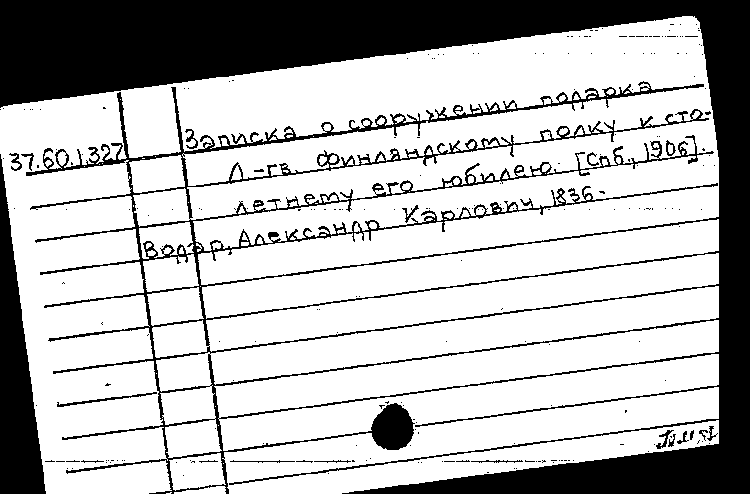 Записка о сооружении подарка
37.60.1327
Л-гв. Финляндскому полку к сто-
летнему его юбилею. [Спб., 1906].
Водар, Александр Карлович, 1836-